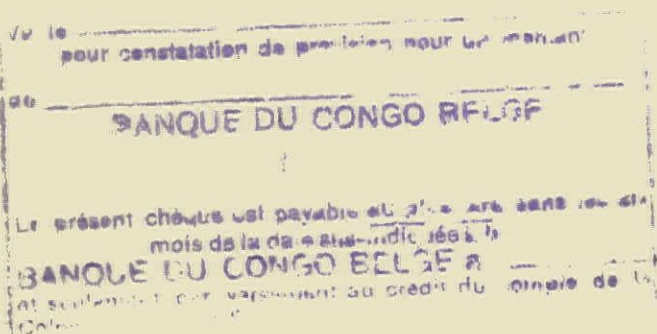 Vu le
pour constatation de provision pour un montant
de
BANQUE DU CONGO BELGE
Le présent chèque est payable au plus tard dans les six
mois de la date sus-indiquée à la
BANQUE DU CONGO BELGE à
et seulement par versement au crédit du compte de la